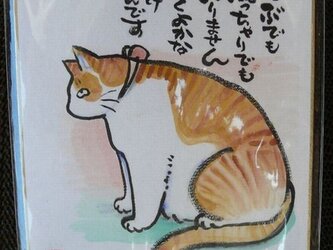 ぶでも
っちゃりでも
りません
くよかな
け
んです